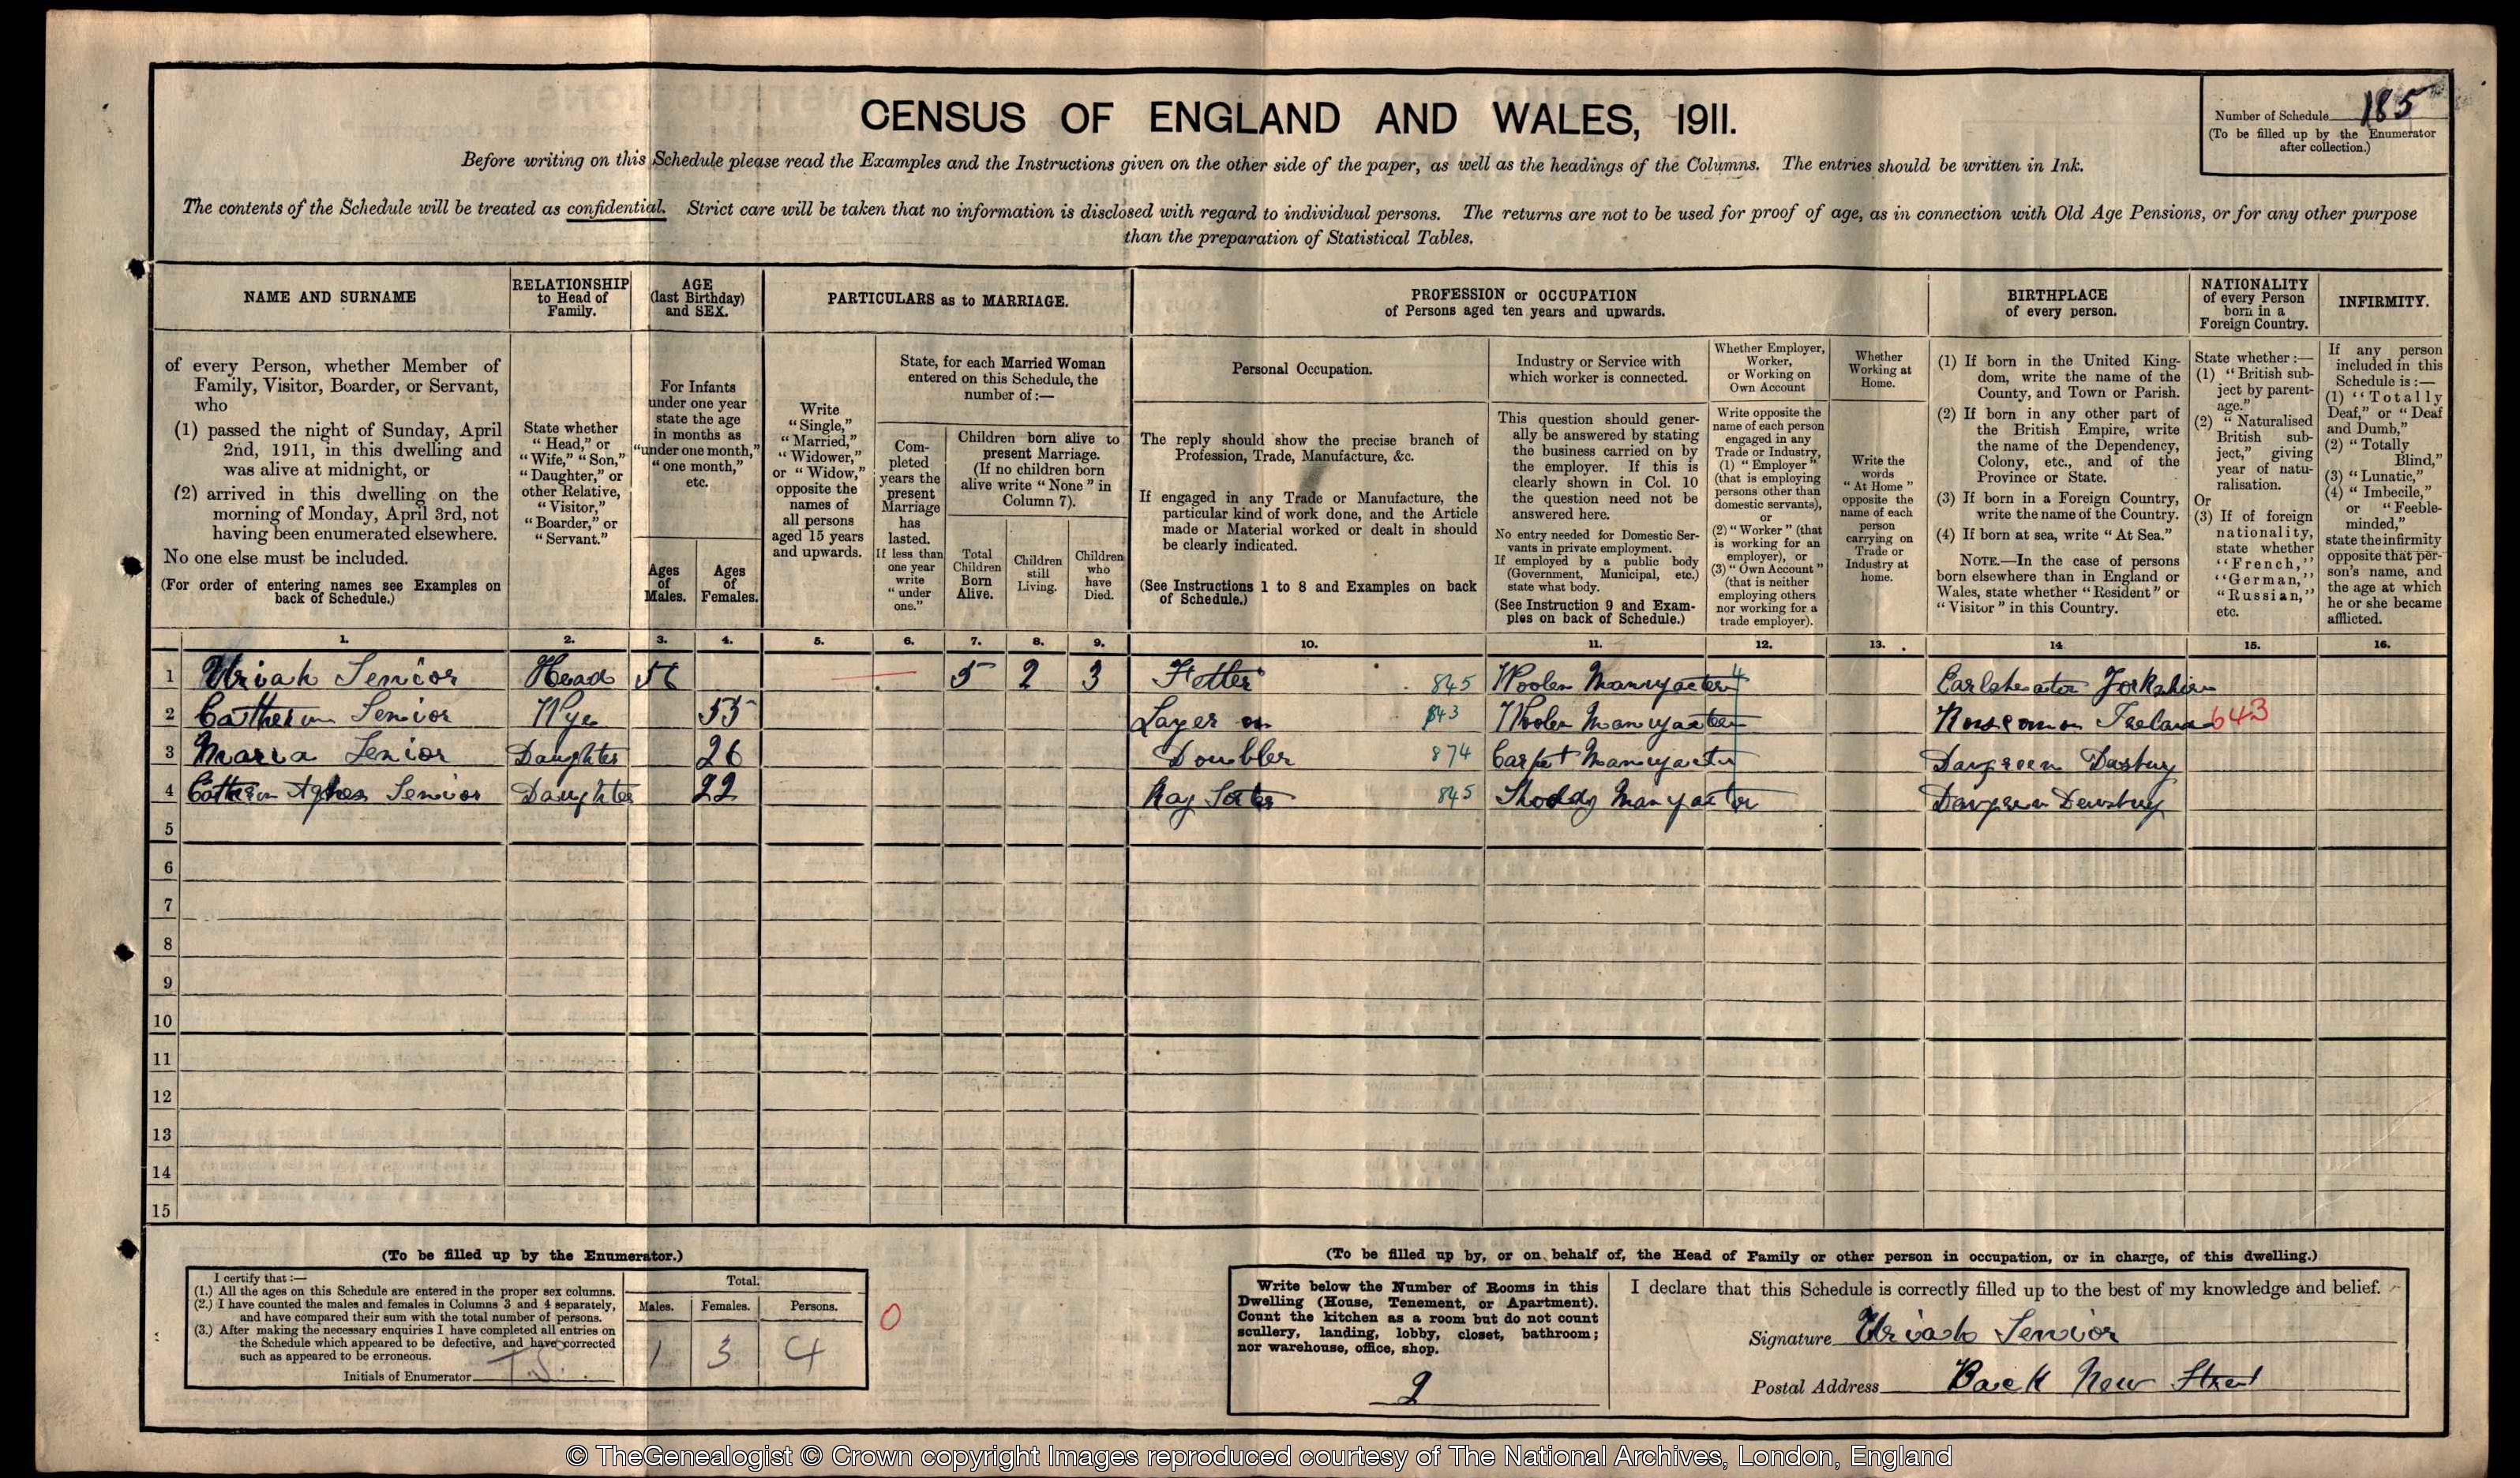 CENSUS OF ENGLAND AND WALES, 1911.
Number of Schedule 185
(To be filled up by the Enumerator
after collection.)
Before writing on this Schedule please read the Examples and the Instructions given on the other side of the paper, as well as the headings of the Columns. The entries should be written in Ink.
The contents of the Schedule will be treated as confidential. Strict care will be taken that no information is disclosed with regard to individual persons. The returns are not to be used for proof of age, as in connection with Old Age Pensions, or for any other purpose
than the preparation of Statistical Tables.
NAME AND SURNAME
RELATIONSHIP
to Head of
Family.
AGE
(last Birthday)
and SEX.
PARTICULARS as to MARRIAGE.
PROFESSION or OCCUPATION
of Persons aged ten years and upwards.
BIRTHPLACE
of every person.
NATIONALITY
of every Person
born in a
Foreign Country.
INFIRMITY.
of every Person, whether Member of
Family, Visitor, Boarder, or Servant,
who
(1) passed the night of Sunday, April
2nd, 1911, in this dwelling and
was alive at midnight, or
(2) arrived in this dwelling on the
morning of Monday, April 3rd, not
having been enumerated elsewhere.
No one else must be included.
(For order of entering names see Examples on
back of Schedule.)
State whether
"Head," or
"Wife," "Son,"
"Daughter," or
other Relative,
"Visitor,"
"Boarder," or
"Servant."
For Infants
under one year
state the age
in months as
"under one month,"
"one month,"
etc.
Ages
of
Males.
Ages
of
Females.
Write
"Single,"
"Married,"
"Widower,"
or "Widow,"
opposite the
names of
all persons
aged 15 years
and upwards.
State, for each Married Woman
entered on this Schedule, the
number of:—
Com-
pleted
years the
present
Marriage
has
lasted.
If less than
one year
write
"under
one."
Children born alive to
present Marriage.
(If no children born
alive write "None" in
Column 7).
Total
Children
Born
Alive.
Children
still
Living.
Children
who
have
Died.
Personal Occupation.
The reply should show the precise branch of
Profession, Trade, Manufacture, &c.
If engaged in any Trade or Manufacture, the
particular kind of work done, and the Article
made or Material worked or dealt in should
be clearly indicated.
(See Instructions 1 to 8 and Examples on back
of Schedule.)
Industry or Service with
which worker is connected.
This question should gener-
ally be answered by stating
the business carried on by
the employer. If this is
clearly shown in Col. 10
the question need not be
answered here.
No entry needed for Domestic Ser-
vants in private employment.
If employed by a public body
(Government, Municipal, etc.)
state what body.
(See Instruction 9 and Exam-
ples on back of Schedule.)
Whether Employer,
Worker,
or Working on
Own Account
Write opposite the
name of each person
engaged in any
Trade or Industry,
(1) "Employer"
(that is employing
persons other than
domestic servants),
or
(2) "Worker" (that
is working for an
employer), or
(3) "Own Account"
(that is neither
employing others
nor working for a
trade employer).
Whether
Working at
Home.
Write the
words
"At Home"
opposite the
name of each
person
carrying on
Trade or
Industry at
home.
(1) If born in the United King-
dom, write the name of the
County, and Town or Parish.
(2) If born in any other part of
the British Empire, write
the name of the Dependency,
Colony, etc., and of the
Province or State.
(3) If born in a Foreign Country,
write the name of the Country.
(4) If born at sea, write "At Sea."
NOTE.—In the case of persons
born elsewhere than in England or
Wales, state whether "Resident" or
"Visitor" in this Country.
State whether:—
(1) "British sub-
ject by parent-
age."
(2) "Naturalised
British sub-
ject," giving
year of natu-
ralisation.
Or
(3) If of foreign
nationality,
state whether
"French,"
"German,"
"Russian,"
etc.
If any person
included in this
Schedule is:—
(1) "Totally
Deaf," or "Deaf
and Dumb,"
(2) "Totally
Blind,"
(3) "Lunatic,"
(4) "Imbecile,"
or "Feeble-
minded,"
state the infirmity
opposite that per-
son's name, and
the age at which
he or she became
afflicted.
1. 2. 3. 4. 5. 6. 7. 8. 9. 10. 11. 12. 13. 14 15. 16.
1 Uriah Senior Head 56 5 2 3 845 Woolen 4
2 Senior 55 Layer on 843 Woolen 643
3 Maria Senior Daughter 26 Doubler 874 Carpet
4 Agnes Senior Daughter 22 Rag 845 Shoddy Dewsbury
5
6
7
8
9
10
11
12
13
14
15
(To be filled up by the Enumerator.)
I certify that:—
(1.) All the ages on this Schedule are entered in the proper sex columns.
(2.) I have counted the males and females in Columns 3 and 4 separately,
and have compared their sum with the total number of persons.
(3.) After making the necessary enquiries I have completed all entries on
the Schedule which appeared to be defective, and have corrected
such as appeared to be erroneous.
Initials of Enumerator T.S.
Total.
Males. Females. Persons.
1 3 4
0
(To be filled up by, or on behalf of, the Head of Family or other person in occupation, or in charge, of this dwelling.)
Write below the Number of Rooms in this
Dwelling (House, Tenement, or Apartment).
Count the kitchen as a room but do not count
scullery, landing, lobby, closet, bathroom;
nor warehouse, office, shop.
2
I declare that this Schedule is correctly filled up to the best of my knowledge and belief.
Signature Uriah Senior
Postal Address Back New Street
© TheGenealogist © Crown copyright Images reproduced courtesy of The National Archives, London, England